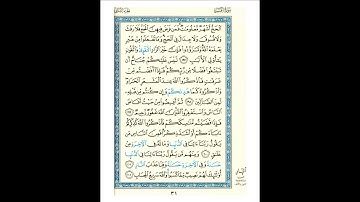 سورة البقرة
الْحَجُّ أَشْهُرٌ مَّعْلُومَاتٌ فَمَن فَرَضَ فِيهِنَّ الْحَجَّ فَلَا رَفَثَ
وَلَا فُسُوقَ وَلَا جِدَالَ فِي الْحَجِّ وَمَا تَفْعَلُوا مِنْ خَيْرٍ
يَعْلَمْهُ اللَّهُ وَتَزَوَّدُوا فَإِنَّ خَيْرَ الزَّادِ التَّقْوَى وَاتَّقُونِ
يَا أُولِي الْأَلْبَابِ ١٩٧ لَيْسَ عَلَيْكُمْ جُنَاحٌ أَن
تَبْتَغُوا فَضْلًا مِّن رَّبِّكُمْ فَإِذَا أَفَضْتُم مِّنْ
عَرَفَاتٍ فَاذْكُرُوا اللَّهَ عِندَ الْمَشْعَرِ الْحَرَامِ
وَاذْكُرُوهُ كَمَا هَدَاكُمْ وَإِن كُنتُم مِّن قَبْلِهِ
لَمِنَ الضَّالِّينَ ١٩٨ ثُمَّ أَفِيضُوا مِنْ حَيْثُ أَفَاضَ
النَّاسُ وَاسْتَغْفِرُوا اللَّهَ إِنَّ اللَّهَ غَفُورٌ رَّحِيمٌ ١٩٩
فَإِذَا قَضَيْتُم مَّنَاسِكَكُمْ فَاذْكُرُوا اللَّهَ كَذِكْرِكُمْ
آبَاءَكُمْ أَوْ أَشَدَّ ذِكْرًا فَمِنَ النَّاسِ مَن
يَقُولُ رَبَّنَا آتِنَا فِي الدُّنْيَا وَمَا لَهُ فِي الْآخِرَةِ مِنْ
خَلَاقٍ ٢٠٠ وَمِنْهُم مَّن يَقُولُ رَبَّنَا آتِنَا فِي الدُّنْيَا
حَسَنَةً وَفِي الْآخِرَةِ حَسَنَةً وَقِنَا عَذَابَ النَّارِ
٢٠١ أُولَئِكَ لَهُمْ نَصِيبٌ مِّمَّا كَسَبُوا وَاللَّهُ سَرِيعُ الْحِسَابِ ٢٠٢
٣١